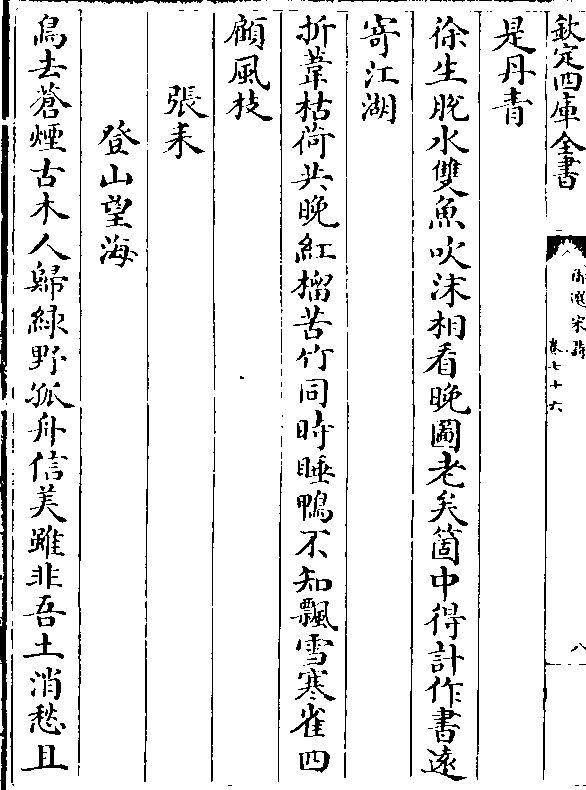 欽定四庫全書
御選宋詩
卷七十六
八
是丹青
徐生脫水雙魚吹沫相看晚圖老矣箇中得計作書遠
寄江湖
折葦枯荷共晚紅榴苦竹同時睡鴨不知飄雪寒雀四
顧風枝
張耒
登山望海
鳥去蒼煙古木人歸綠野孤舟信美雖非吾土消愁且